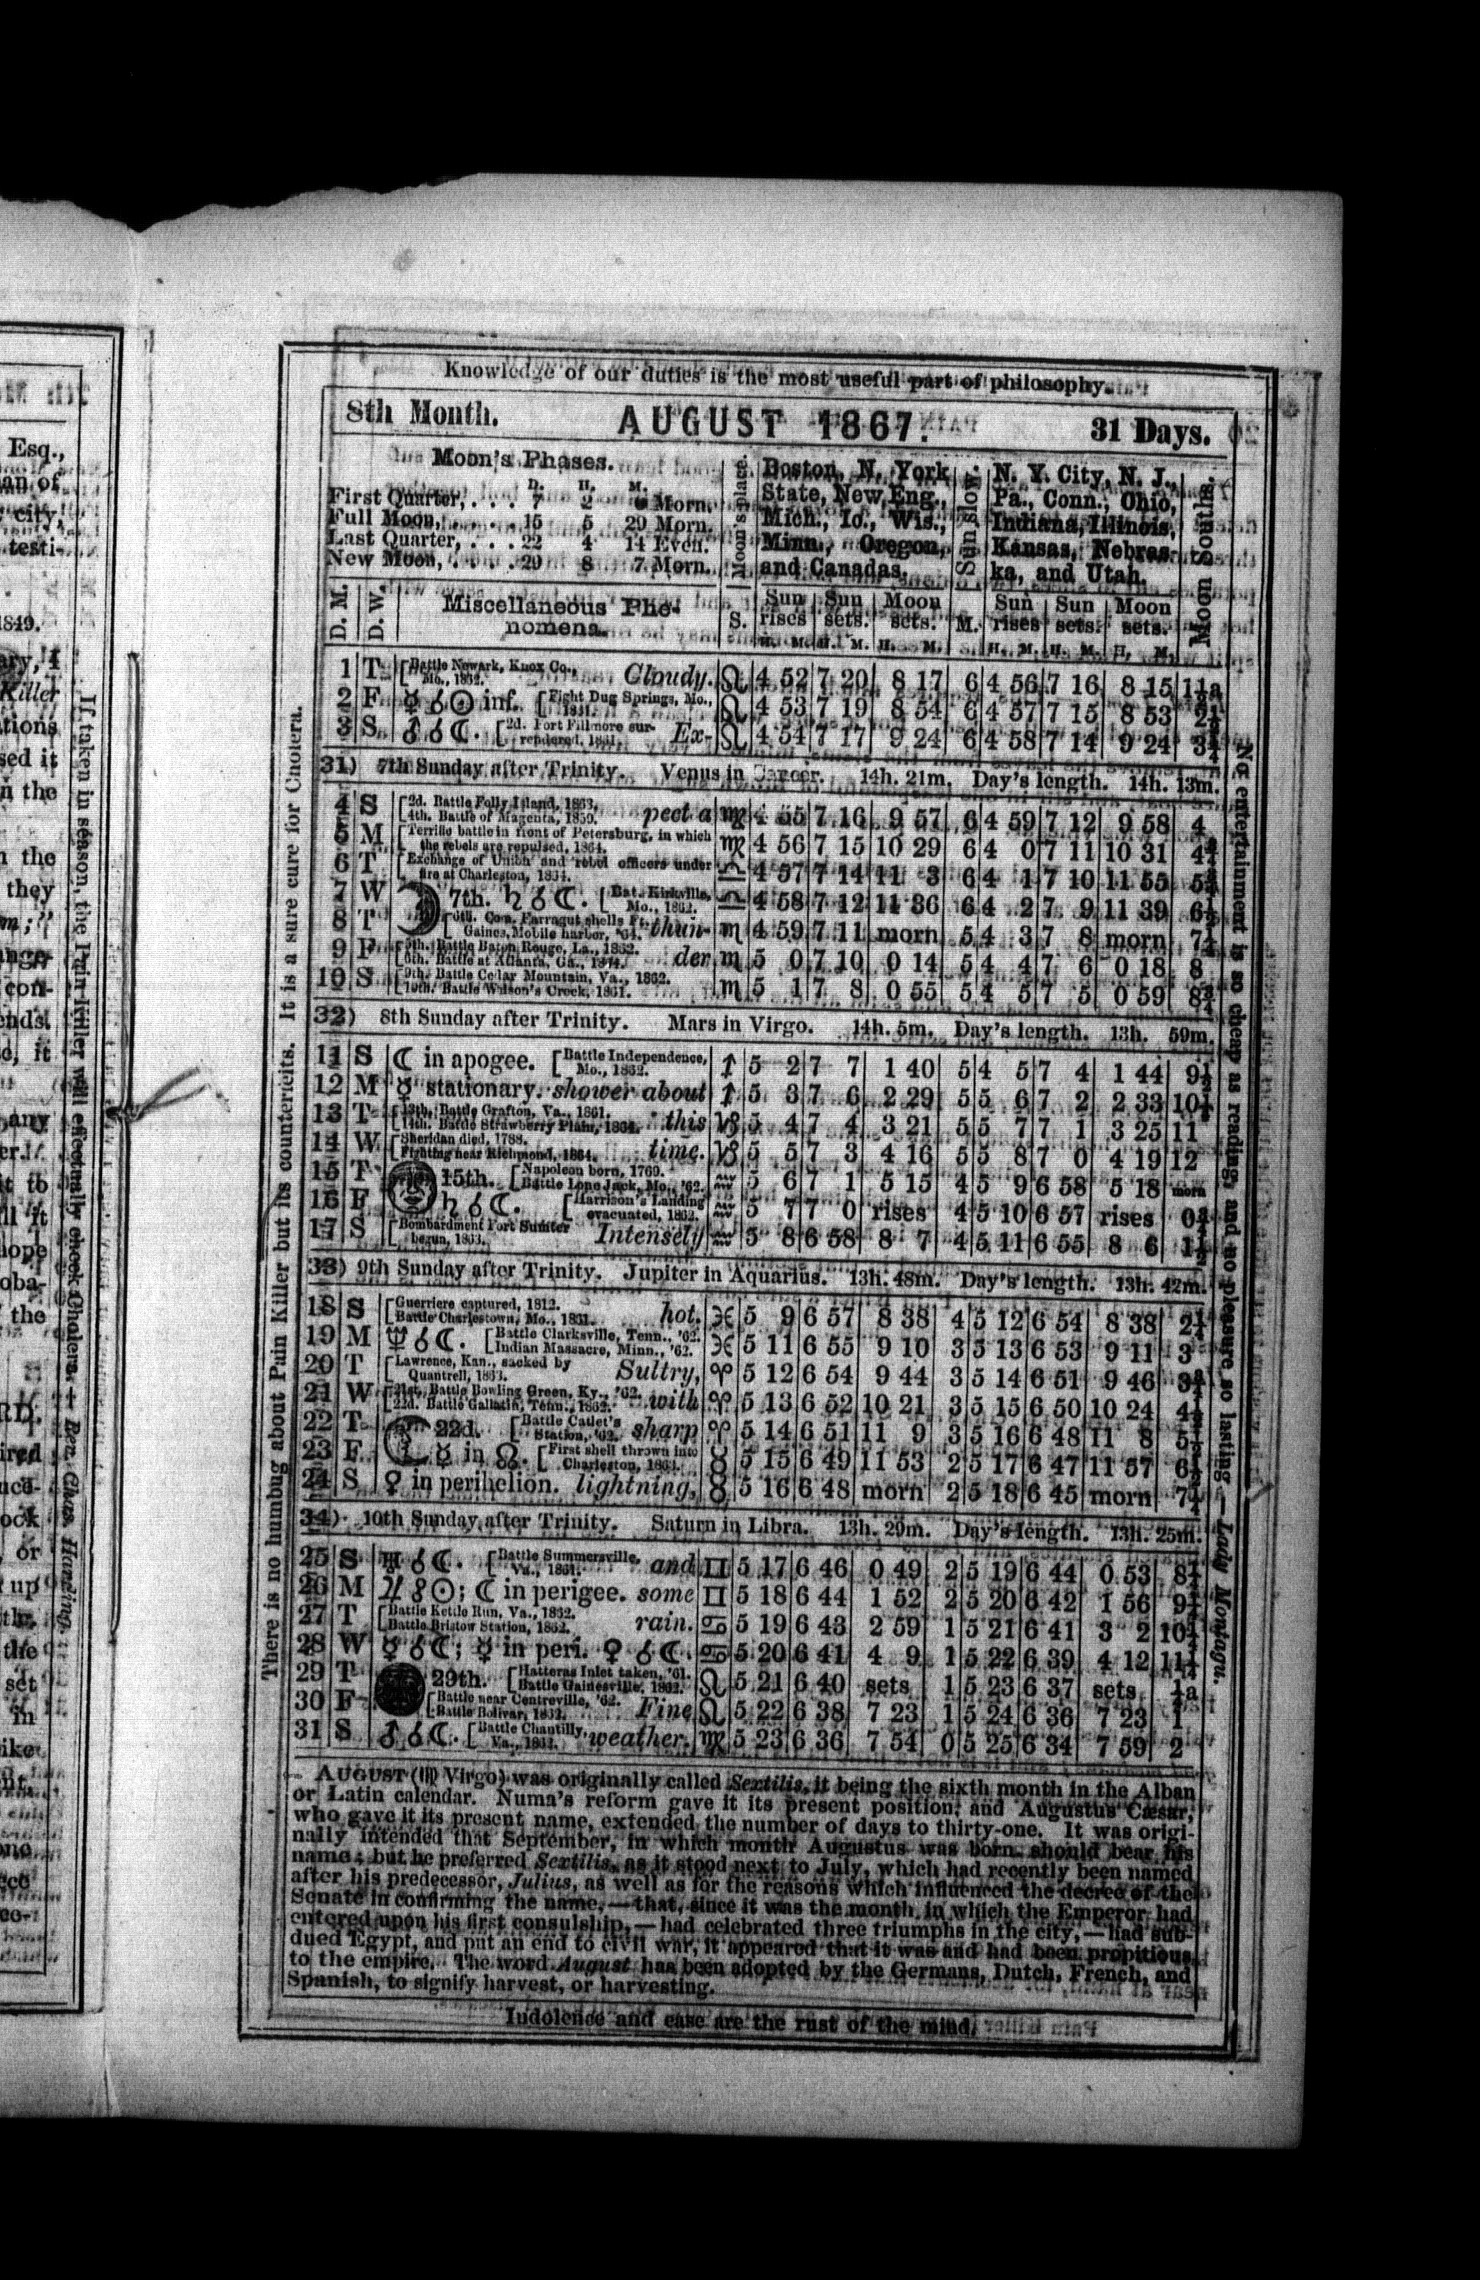 Knowledge of our duties is the most useful part of philosophy.
8th Month. AUGUST 1867. 31 Days.
Moon's Phases.
D. H. M.
First Quarter, . . . 7 2 Morn.
Full Moon, . . . . . 15 5 29 Morn.
Last Quarter, . . . 22 4 14 Even.
New Moon, . . . . . 29 8 7 Morn.
Moon's place.
Boston, N. York
State, New Eng.,
Mich., Io., Wis.,
Minn., Oregon,
and Canadas.
Sun slow.
N. Y. City, N. J.,
Pa., Conn., Ohio,
Indiana, Illinois,
Kansas, Nebras-
ka, and Utah.
Moon Souths.
D. M. D. W. Miscellaneous Phe-
nomena. S. Sun rises Sun sets. Moon sets. M. Sun rises Sun sets. Moon sets.
H. M. H. M. H. M. H. M. H. M. H. M.
1 T [Battle Newark, Knox Co., Mo., 1862. Cloudy. ♌ 4 52 7 20 8 17 6 4 56 7 16 8 15 11a
2 F ☿ ☌ ☉ inf. [Fight Dug Springs, Mo., 1861. ♌ 4 53 7 19 8 54 6 4 57 7 15 8 53 2¼
3 S ♂ ☌ ☾. [2d. Fort Fillmore surrendered, 1861. Ex- ♌ 4 54 7 17 9 24 6 4 58 7 14 9 24 3¼
31) 7th Sunday after Trinity. Venus in Cancer. 14h. 21m. Day's length. 14h. 13m.
4 S [2d. Battle Folly Island, 1863. 4th. Battle of Magenta, 1859. pect a ♍ 4 55 7 16 9 57 6 4 59 7 12 9 58 4
5 M [Terrific battle in front of Petersburg, in which the rebels are repulsed, 1864. ♍ 4 56 7 15 10 29 6 4 0 7 11 10 31 4¾
6 T [Exchange of Union and rebel officers under fire at Charleston, 1864. ♎ 4 57 7 14 11 3 6 4 1 7 10 11 55
7 W 7th. ♄ ☌ ☾. [Bat. Kirkville, Mo., 1862. ♎ 4 58 7 12 11 36 6 4 2 7 9 11 39
8 T [5th. Com. Farragut shells Ft. Gaines, Mobile harbor, '64. thun- ♏ 4 59 7 11 morn 5 4 3 7 8 morn 7¼
9 F [5th. Battle Baton Rouge, La., 1862. 6th. Battle at Atlanta, Ga., 1864. der ♏ 5 0 7 10 0 14 5 4 4 7 6 0 18 8
10 S [9th. Battle Cedar Mountain, Va., 1862. 10th. Battle Wilson's Creek, 1861. ♏ 5 1 7 8 0 55 5 4 5 7 5 0 59 8¾
32) 8th Sunday after Trinity. Mars in Virgo. 14h. 5m. Day's length. 13h. 59m.
11 S ☾ in apogee. [Battle Independence, Mo., 1862. ♐ 5 2 7 7 1 40 5 4 5 7 4 1 44
12 M ☿ stationary. shower about ♐ 5 3 7 6 2 29 5 5 6 7 2 2 33
13 T [13th. Battle Grafton, Va., 1861. 14th. Battle Strawberry Plain, 1864. this ♑ 5 4 7 4 3 21 5 5 7 7 1 3 25 11
14 W [Sheridan died, 1788. Fighting near Richmond, 1864. time. ♑ 5 5 7 3 4 16 5 5 8 7 0 4 19 12
15 T 15th. [Napoleon born, 1769. Battle Lone Jack, Mo., '62. ♒ 5 6 7 1 5 15 4 5 9 6 58 5 18 morn
16 F ♄ ☌ ☾. [Harrison's Landing evacuated, 1862. ♒ 5 7 7 0 rises 4 5 10 6 57 rises 0¾
17 S [Bombardment Fort Sumter begun, 1863. Intensely ♒ 5 8 6 58 8 7 4 5 11 6 55 8 6
33) 9th Sunday after Trinity. Jupiter in Aquarius. 13h. 48m. Day's length. 13h. 42m.
18 S [Guerriere captured, 1812. Battle Charlestown, Mo., 1861. hot. ♓ 5 9 6 57 8 38 4 5 12 6 54 8 38 2¼
19 M ♆ ☌ ☾. [Battle Clarksville, Tenn., '62. Indian Massacre, Minn., '62. ♓ 5 11 6 55 9 10 3 5 13 6 53 9 11 3
20 T [Lawrence, Kan., sacked by Quantrell, 1863. Sultry, ♈ 5 12 6 54 9 44 3 5 14 6 51 9 46 3¾
21 W [21st. Battle Bowling Green, Ky., '62. 22d. Battle Gallatin, Tenn., 1862. with ♈ 5 13 6 52 10 21 3 5 15 6 50 10 24
22 T 22d. [Battle Catlet's Station, '62. sharp ♈ 5 14 6 51 11 9 3 5 16 6 48 11 8
23 F ☿ in ☊. [First shell thrown into Charleston, 1864. ♉ 5 15 6 49 11 53 2 5 17 6 47 11 57
24 S ♀ in perihelion. lightning, ♉ 5 16 6 48 morn 2 5 18 6 45 morn 7¼
34) 10th Sunday after Trinity. Saturn in Libra. 13h. 29m. Day's length. 13h. 25m.
25 S ♅ ☌ ☾. [Battle Summersville, Va., 1861. and ♊ 5 17 6 46 0 49 2 5 19 6 44 0 53 8¼
26 M ♃ ☍ ☉; ☾ in perigee. some ♊ 5 18 6 44 1 52 2 5 20 6 42 1 56 9¼
27 T [Battle Kettle Run, Va., 1862. Battle Bristow Station, 1862. rain. ♋ 5 19 6 43 2 59 1 5 21 6 41 3 2 10¼
28 W ☿ ☌ ☾; ☿ in peri. ♀ ☌ ☾. ♋ 5 20 6 41 4 9 1 5 22 6 39 4 12 11¼
29 T 29th. [Hatteras Inlet taken, '61. Battle Gainesville, 1862. ♌ 5 21 6 40 sets 1 5 23 6 37 sets
30 F [Battle near Centreville, '62. Battle Bolivar, 1862. Fine ♌ 5 22 6 38 7 23 1 5 24 6 36 7 23 1
31 S ♂ ☌ ☾. [Battle Chantilly, Va., 1862. weather. ♍ 5 23 6 36 7 54 0 5 25 6 34 7 59 2
AUGUST (♍ Virgo) was originally called Sextilis, it being the sixth month in the Alban
or Latin calendar. Numa's reform gave it its present position; and Augustus Cæsar,
who gave it its present name, extended the number of days to thirty-one. It was origi-
nally intended that September, in which month Augustus was born, should bear his
name; but he preferred Sextilis, as it stood next to July, which had recently been named
after his predecessor, Julius, as well as for the reasons which influenced the decree of the
Senate in confirming the name,—that, since it was the month in which the Emperor had
entered upon his first consulship,—had celebrated three triumphs in the city,—had sub-
dued Egypt, and put an end to civil war, it appeared that it was and had been propitious
to the empire. The word August has been adopted by the Germans, Dutch, French, and
Spanish, to signify harvest, or harvesting.
Indolence and ease are the rust of the mind.
There is no humbug about Pain Killer but its counterfeits. It is a sure cure for Cholera.
No entertainment is so cheap as reading, and no pleasure so lasting.—Lady Montagu.
If taken in season, the Pain Killer will effectually check Cholera.—Rev. Chas. Harding.
Esq.,
an of
city,
testi-
1849.
Killer
ations
sed it
n the
n the
they
con-
ends.
it
any
er.
hope
oba-
the
RD.
ired
or
up
the
set
in